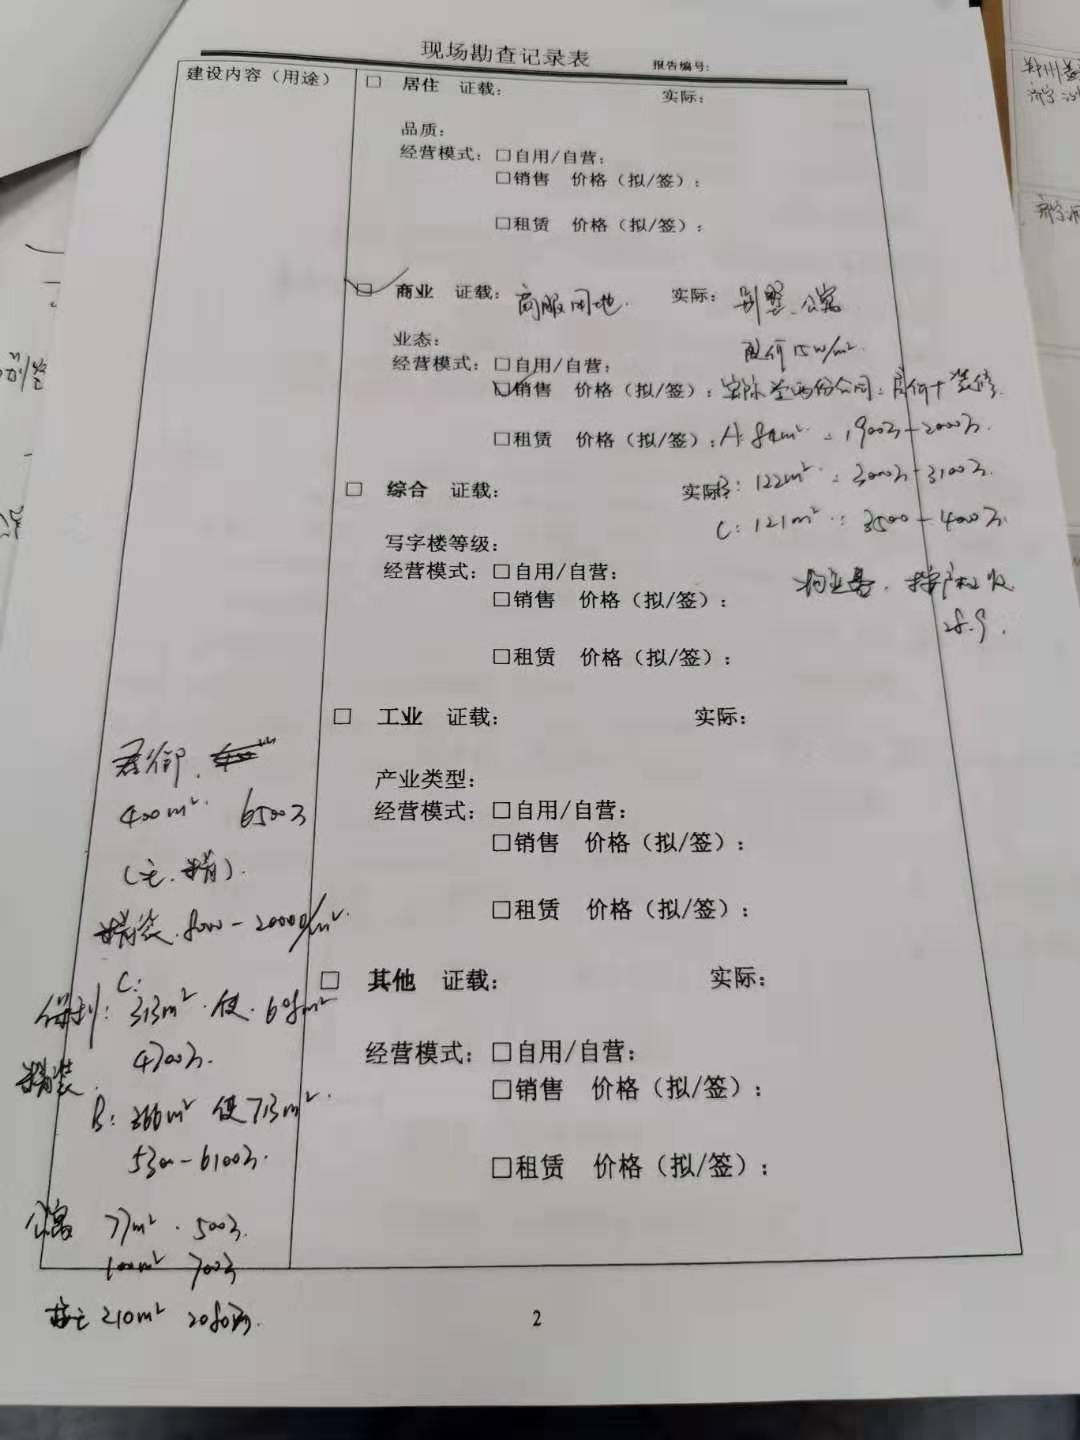 现场勘查记录表 报告编号:
建设内容(用途)
□ 居住 证载: 实际:
品质:
经营模式: □自用/自营:
□销售 价格(拟/签):
□租赁 价格(拟/签):
□ 商业 证载: 商服用地. 实际: 别墅、公寓
业态: 成价15w/m².
经营模式: □自用/自营:
□销售 价格(拟/签): 实际签两份合同:房价+装修.
□租赁 价格(拟/签): A: 84m²: 1900万-2000万.
□ 综合 证载: 实际: B: 122m²: 3000万-3100万.
C: 121m²: 3500-4000万.
写字楼等级:
经营模式: □自用/自营: 物业费.
□销售 价格(拟/签): 28.9.
□租赁 价格(拟/签):
□ 工业 证载: 实际:
产业类型:
经营模式: □自用/自营:
□销售 价格(拟/签):
□租赁 价格(拟/签):
□ 其他 证载: 实际:
经营模式: □自用/自营:
□销售 价格(拟/签):
□租赁 价格(拟/签):
君御.
400m². 6500万
精装. 8000-20000/m².
C:
保利: 313m². 使. 698m²
精装. 4700万.
B: 366m² 使713m².
5300-6100万.
公寓 77m². 500万.
100m² 700万
210m² 2080万.
2